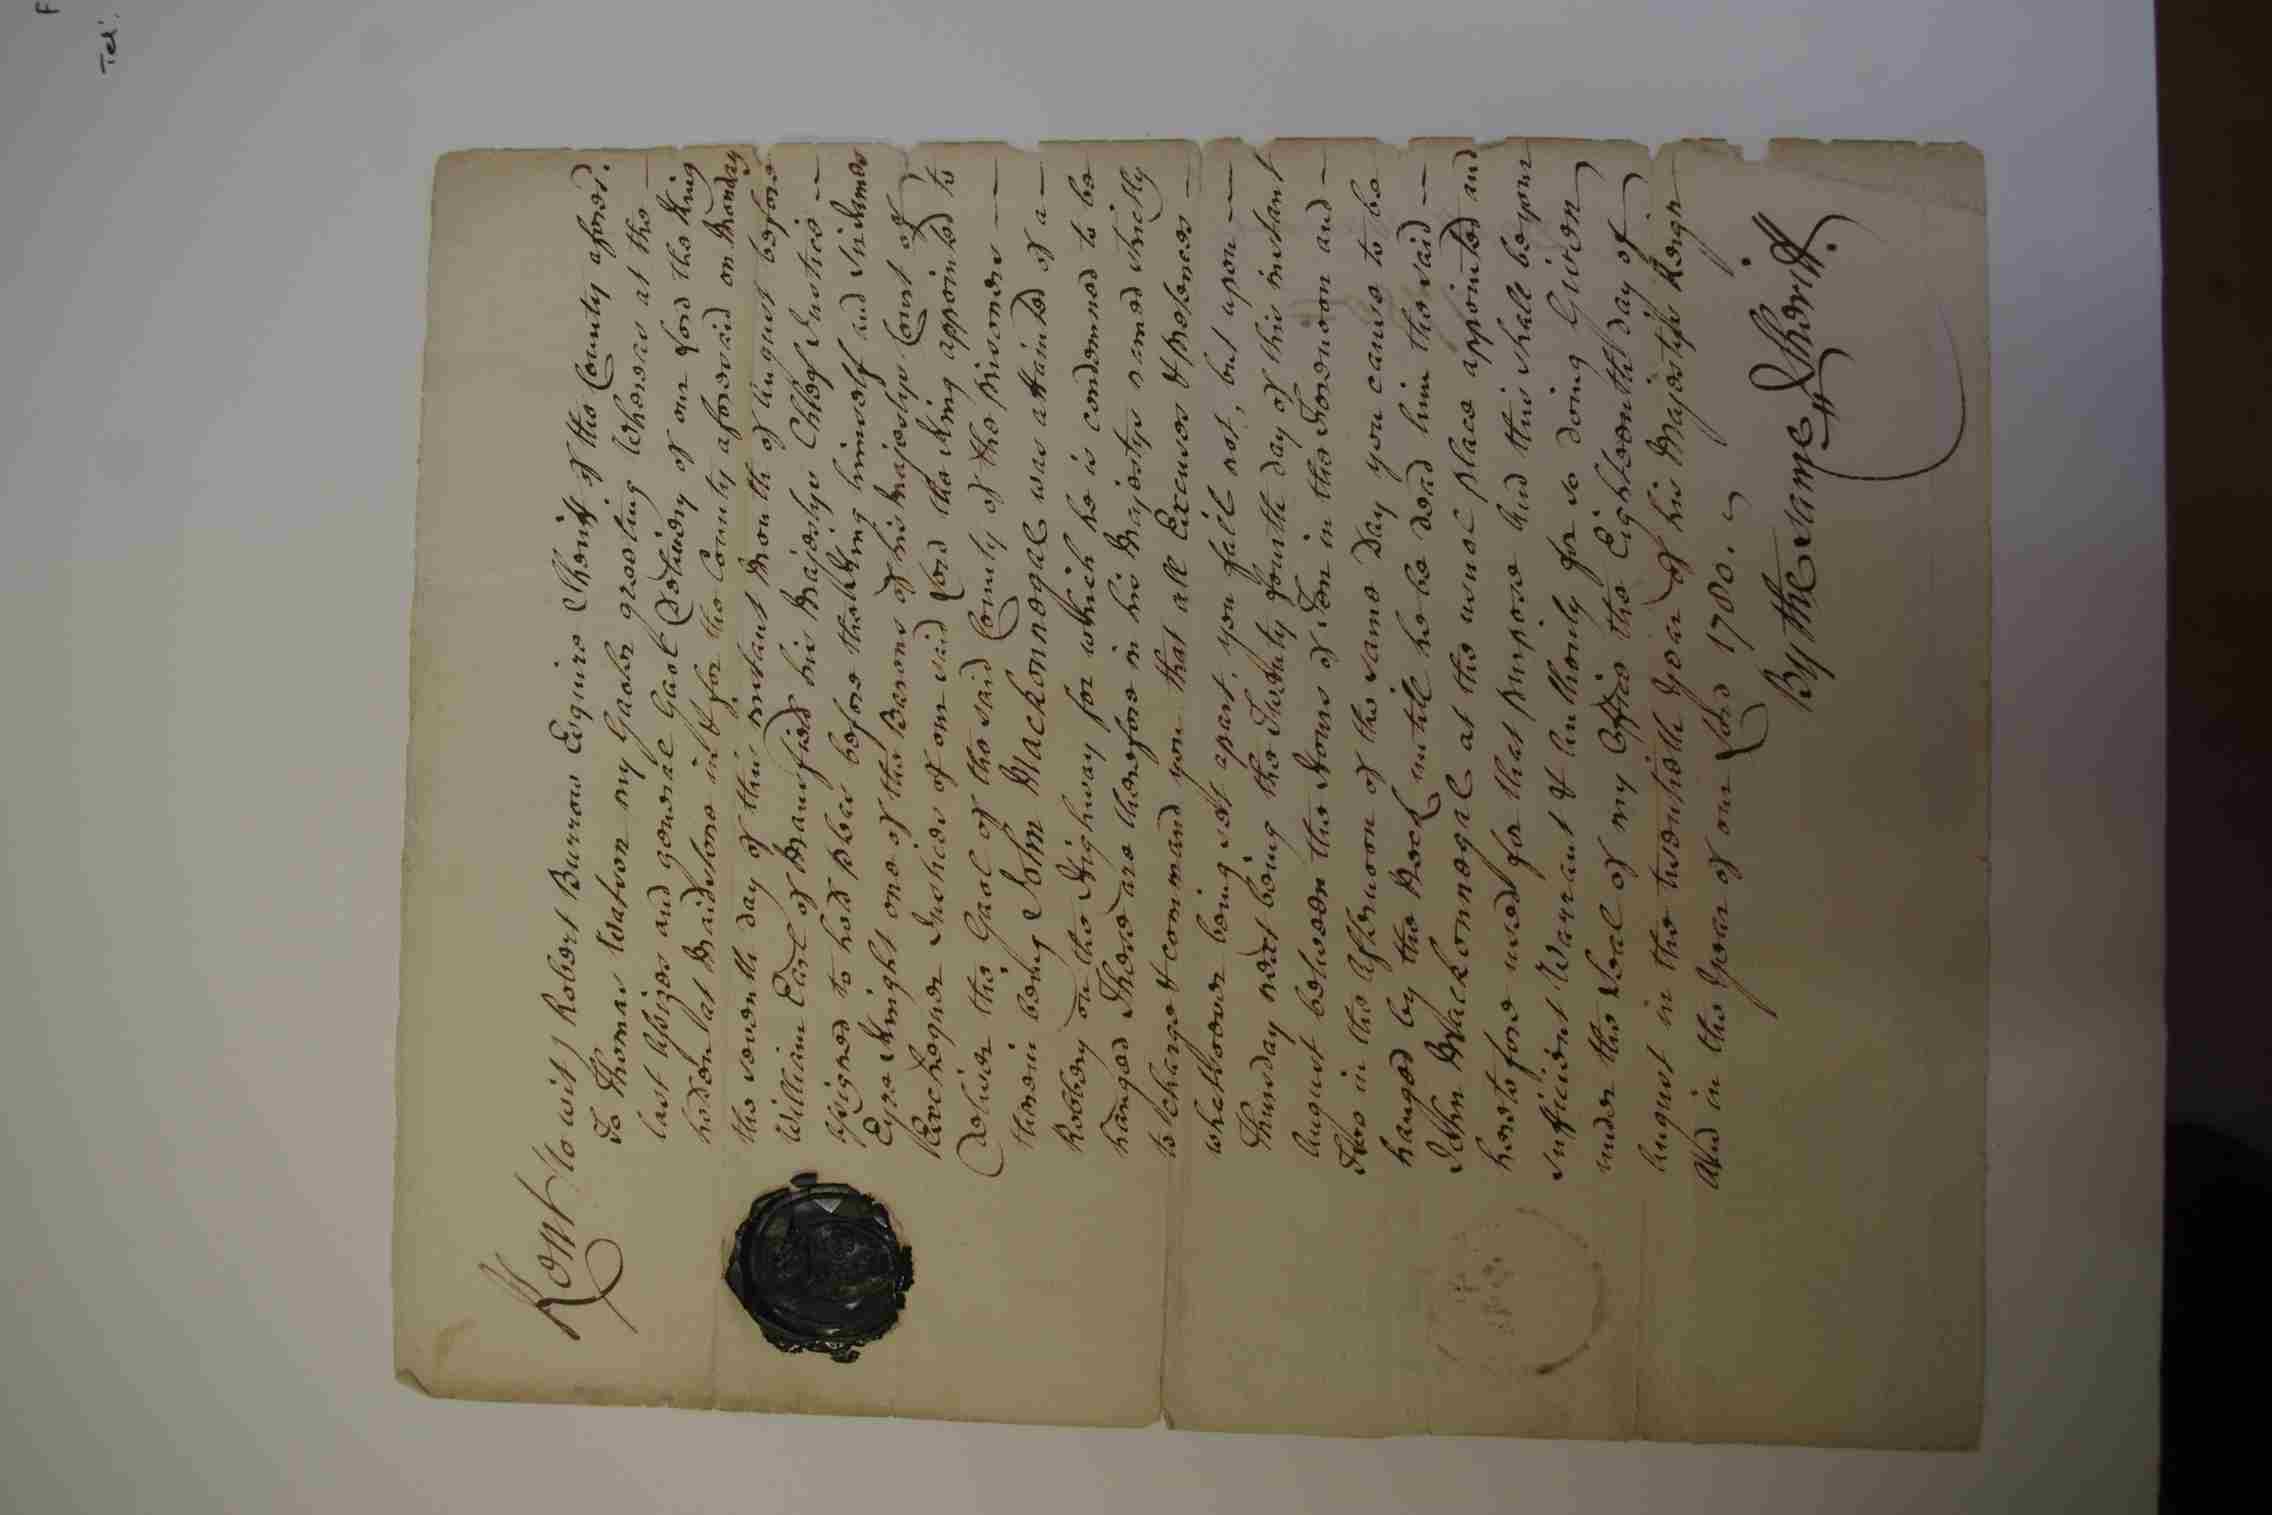 Kent to wit) Robert Burrow Esquire Sheriff of the County afores.d
To Thomas Watson my Gaoler greeting Whereas at the
last Assizes and general Gaol Delivery of our Lord the King
holden at Maidstone in & for the County aforesaid on Monday
the seventh day of this instant Month of August before
William Earl of Mansfield his Majestys Chief Justice
assigned to hold pleas before the King himself and
Eyre Knight one of the Barons of his Majestys Court of
Exchequer Justices of our said Lord the King appointed to
Deliver the Gaol of the said County of the prisoners
therein being John Mackonnegal was attainted of a
Robbery on the Highway for which he is condemned to be
hanged These are therefore in his Majestys name strictly
to charge & command you that all Excuses & pretences
whatsoever being set apart, you fail not, but upon
Thursday next being the Twenty fourth day of this instant
August between the Hours of Ten in the Forenoon and
Two in the Afternoon of the same Day you cause to be
hanged by the Neck until he be dead him the said
John Mackonnegal at the usual place appointed and
heretofore used for that purpose And this shall be your
sufficient Warrant & Authority for so doing Given
under the Seal of my Office the Eighteenth day of
August in the twentieth Year of his Majestys Reign
And in the Year of our Lord 1780.
By the same Sheriff.
Tel:
F